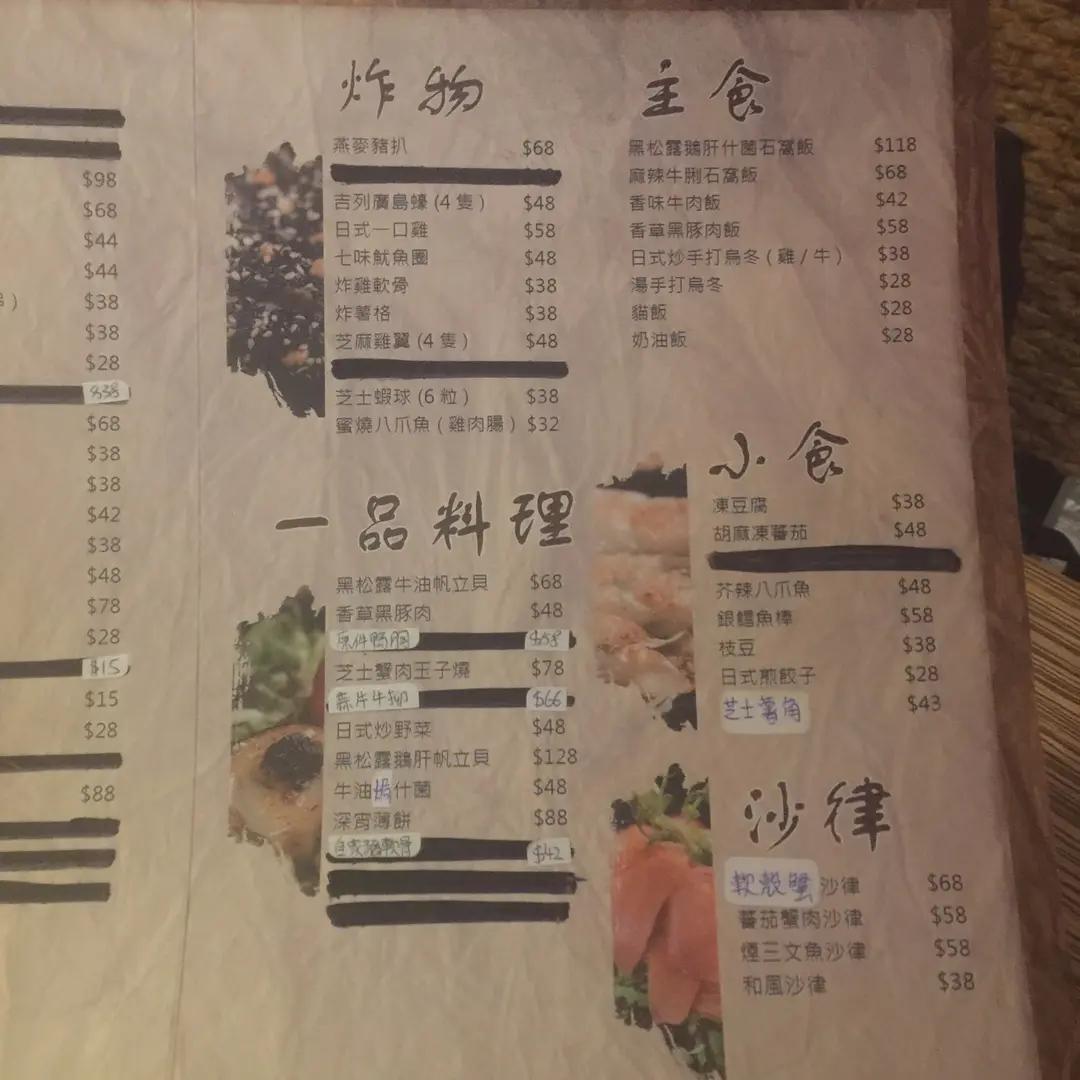 $98
$68
$44
$44
$38
$38
$28
$38
$68
$38
$38
$42
$38
$48
$78
$28
$15
$15
$28
$88
炸物
燕麥豬扒 $68
吉列廣島蠔 (4 隻) $48
日式一口雞 $58
七味魷魚圈 $48
炸雞軟骨 $38
炸薯格 $38
芝麻雞翼 (4 隻) $48
芝士蝦球 (6 粒) $38
蜜燒八爪魚 (雞肉腸) $32
一品料理
黑松露牛油帆立貝 $68
香草黑豚肉 $48
原件鴨胸 $58
芝士蟹肉玉子燒 $78
蒜片牛柳 $66
日式炒野菜 $48
黑松露鵝肝帆立貝 $128
牛油焗什菌 $48
深宵薄餅 $88
軟骨 $42
主食
黑松露鵝肝什菌石窩飯 $118
麻辣牛脷石窩飯 $68
香味牛肉飯 $42
香草黑豚肉飯 $58
日式炒手打烏冬 (雞/牛) $38
湯手打烏冬 $28
貓飯 $28
奶油飯 $28
小食
凍豆腐 $38
胡麻凍蕃茄 $48
芥辣八爪魚 $48
銀鱈魚棒 $58
枝豆 $38
日式煎餃子 $28
芝士薯角 $43
沙律
軟殼蟹沙律 $68
蕃茄蟹肉沙律 $58
煙三文魚沙律 $58
和風沙律 $38